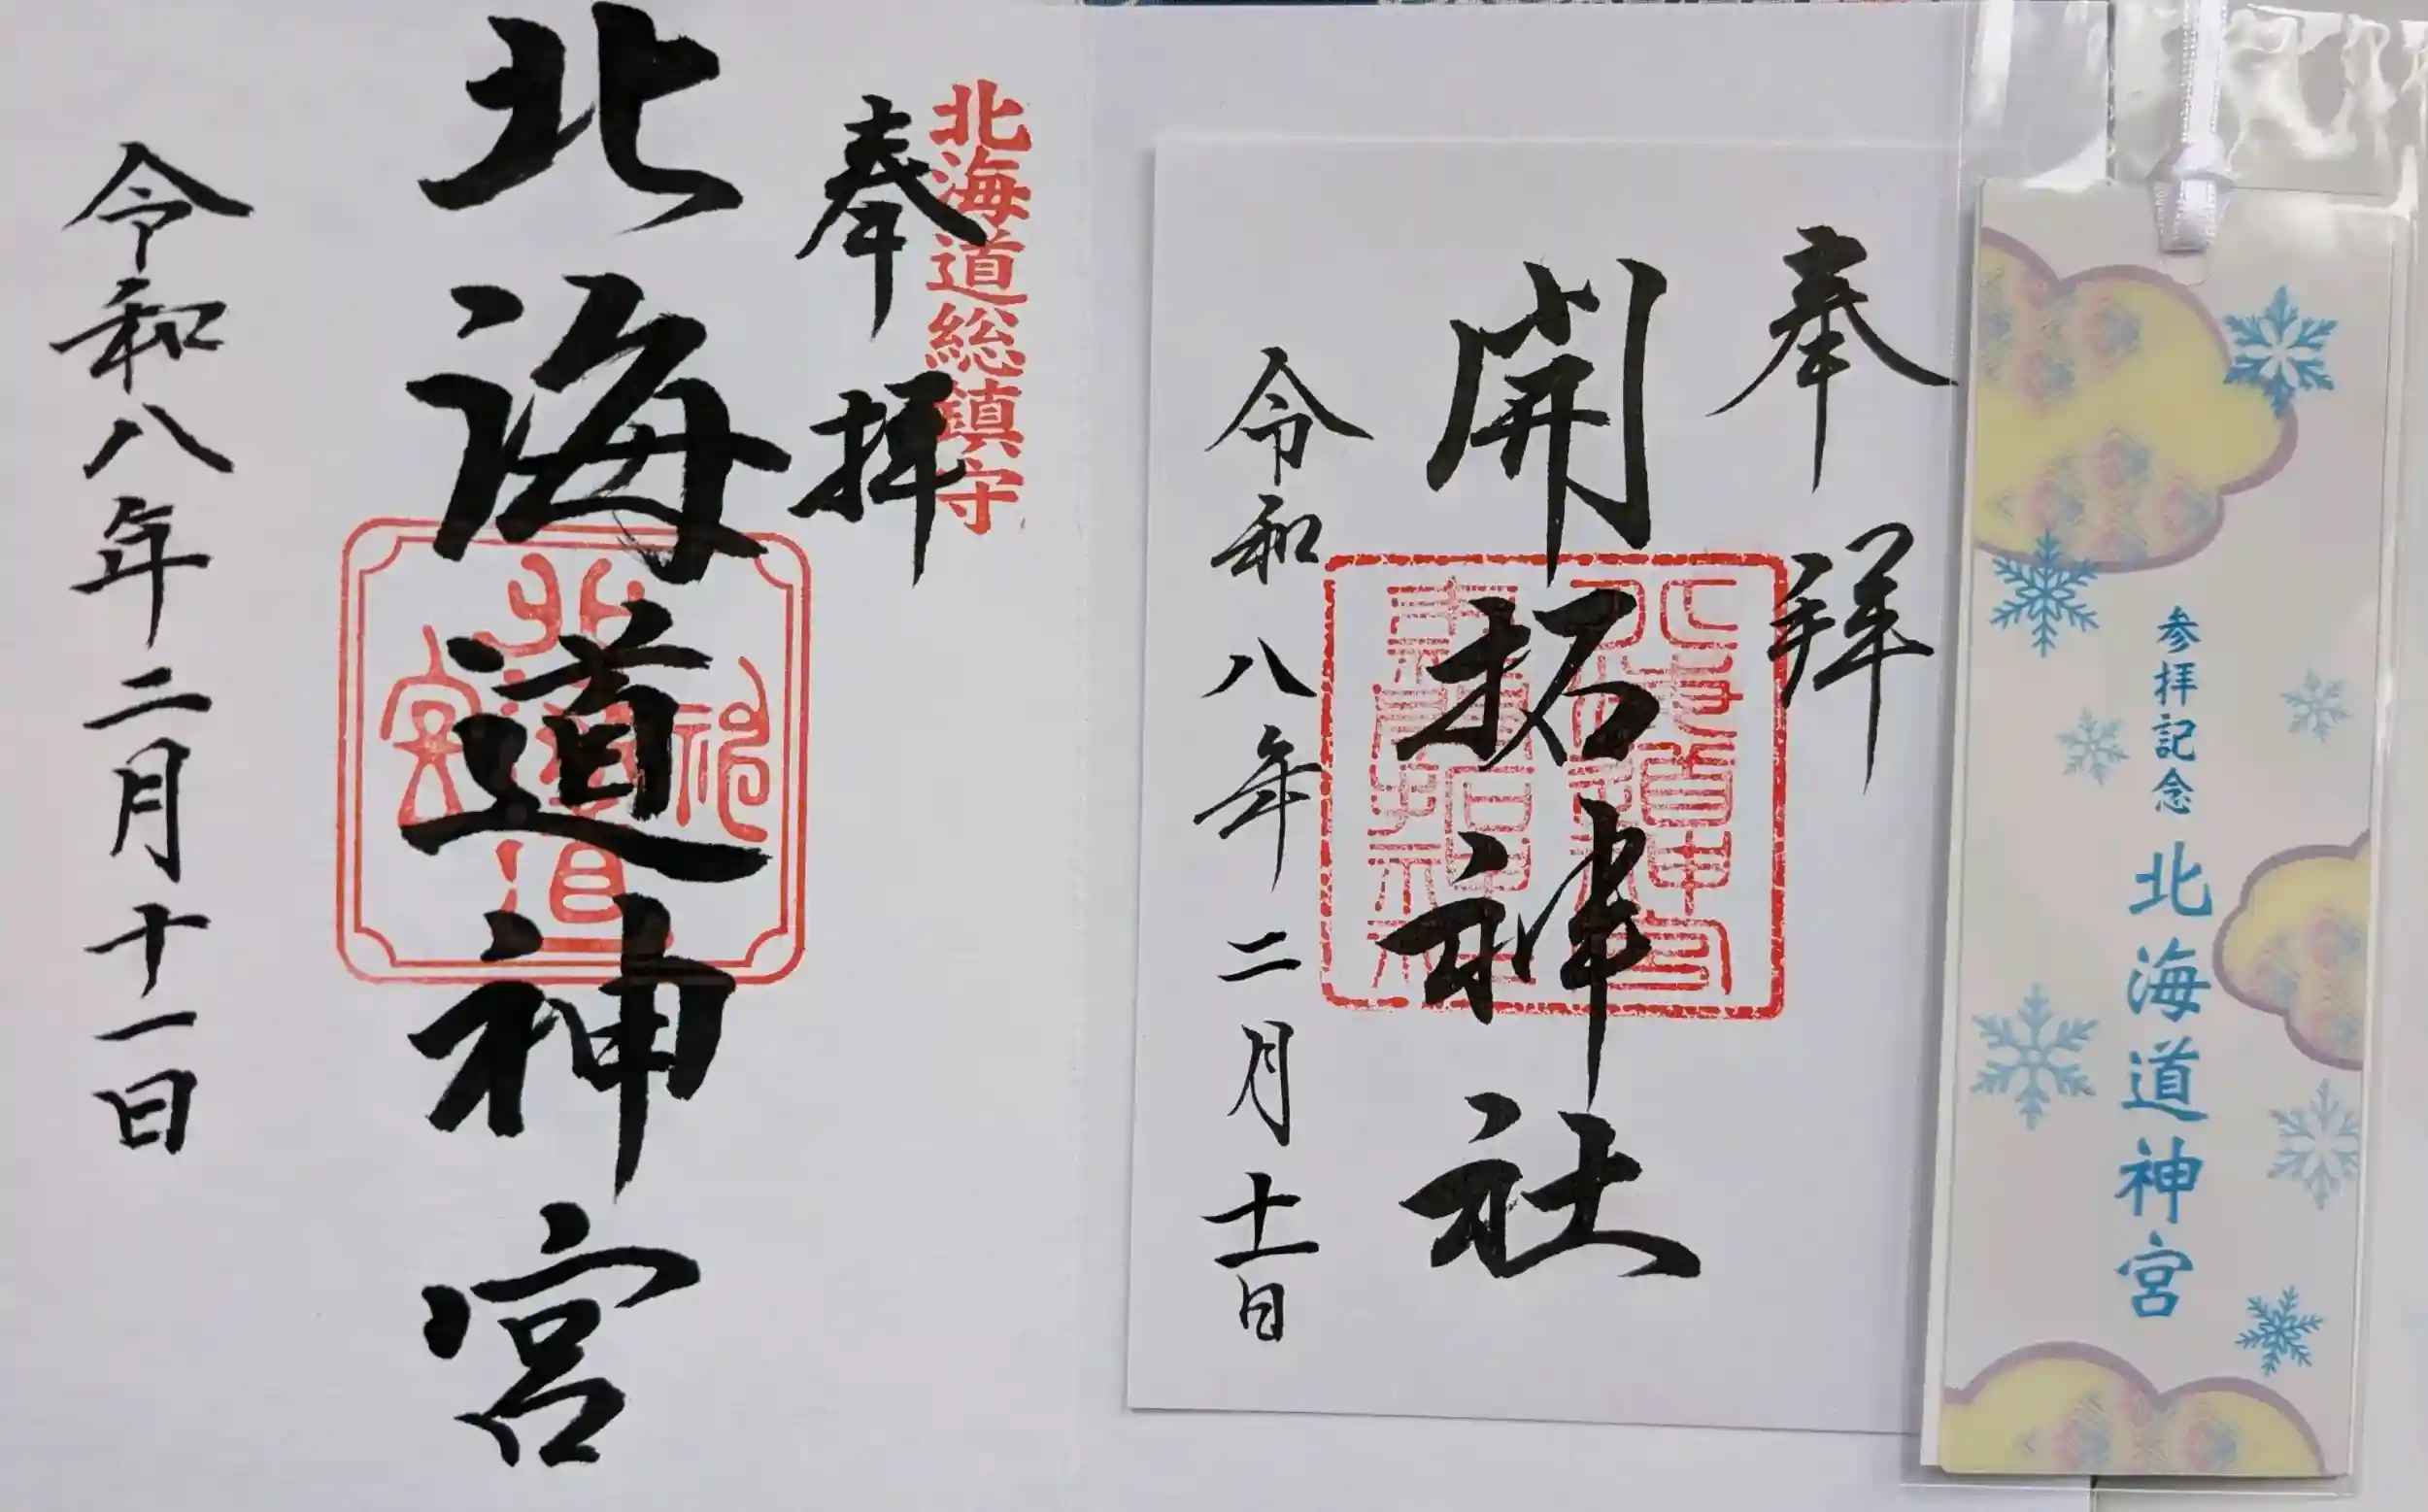 参拝記念 北海道神宮
奉拝
開拓神社
令和八年二月十一日
北海道総鎮守
奉拝
北海道神宮
令和八年二月十一日